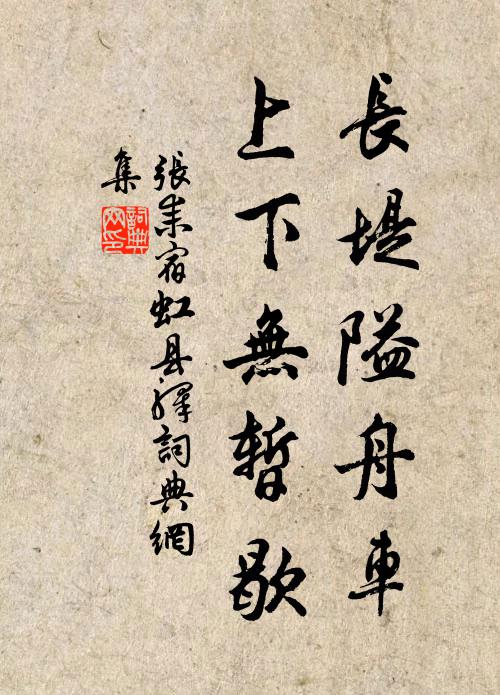 長堤隘舟車
上下無暫歇
張耒宿虹县驛詞典網
集
詞典
网印